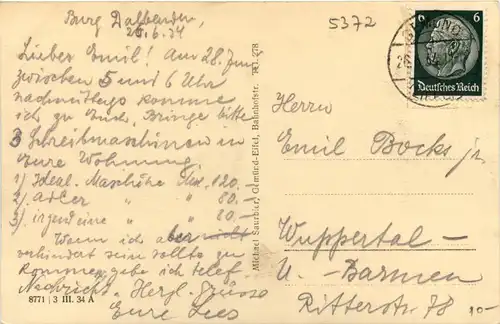 Burg Dalbenden,
26.6.34
5372
Lieber Emil! Am 28. Juni
zwischen 5 und 6 Uhr
nachmittags komme
ich zu Euch. Bringe bitte
3 Schreibmaschinen in
Eure Wohnung.
1) Ideal. Maschine 120.-
2) Adler " " 80.-
3) irgend eine " 80.-
Wenn ich aber
verhindert sein sollte zu
kommen, gebe ich telef.
Nachricht. Herzl. Grüsse
Eure
8771 | 3 III. 34 A
Michael Saurbier, Gemünd-Eifel, Bahnhofstr. Tel. 278
6 6
Deutsches Reich
Herrn
Emil Bocks jr.
Wuppertal-
U.-Barmen
Ritterstr. 78
10-